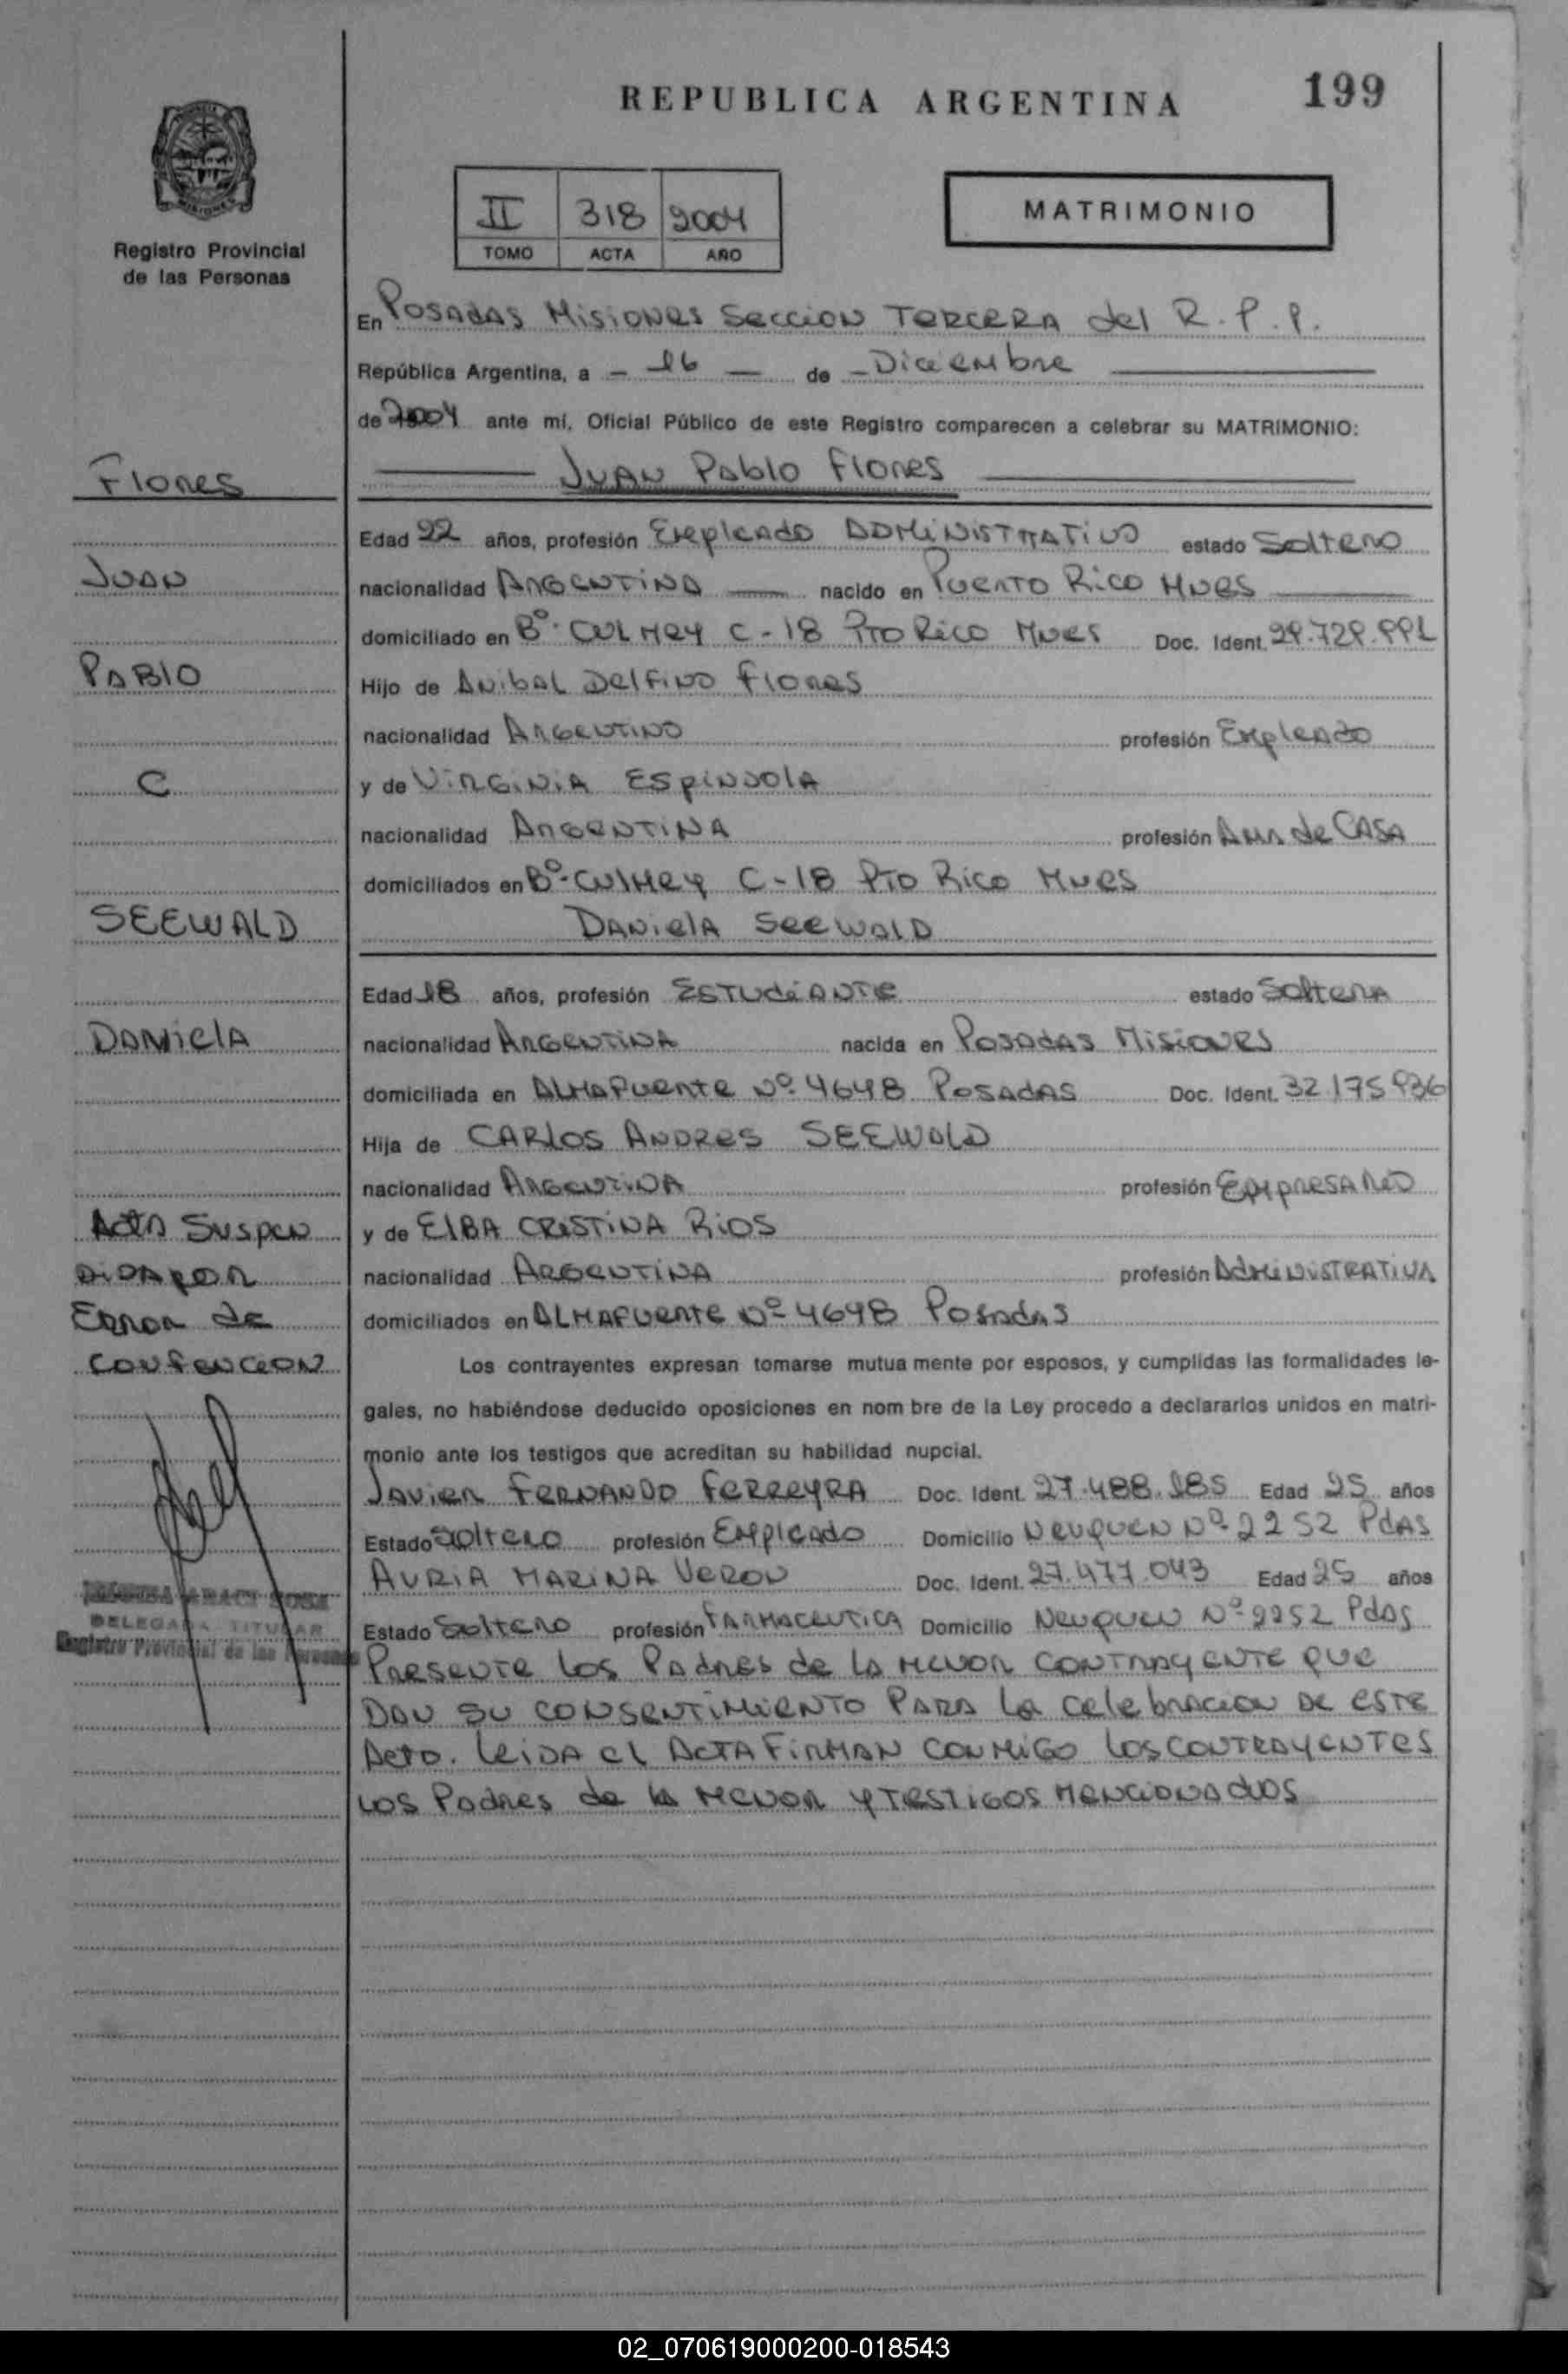 REPUBLICA ARGENTINA
199
MISIONES
Registro Provincial
de las Personas
II 318 2004
TOMO ACTA AÑO
MATRIMONIO
En Posadas Misiones Seccion Tercera del R.P.P.
República Argentina, a - 16 - de - Diciembre
de 2004 ante mí, Oficial Público de este Registro comparecen a celebrar su MATRIMONIO:
Flores
Juan Pablo Flores
Edad 22 años, profesión Empleado Administrativo estado Soltero
Juan
nacionalidad Argentina nacido en Puerto Rico Mnes
domiciliado en B° Culmey C-18 Pto Rico Mnes Doc. Ident.
Pablo
Hijo de Anibal Delfino Flores
nacionalidad Argentino profesión Empleado
C
y de Virginia Espindola
nacionalidad Argentina profesión Ama de Casa
domiciliados en B° Culmey C-18 Pto Rico Mnes
SEEWALD
Daniela Seewald
Edad 18 años, profesión Estudiante estado Soltera
Daniela
nacionalidad Argentina nacida en Posadas Misiones
domiciliada en Almafuerte N° 4648 Posadas Doc. Ident. 32.175.936
Hija de Carlos Andres Seewald
nacionalidad Argentina profesión Empresario
Acta Suspen
y de Elba Cristina Rios
dida por
nacionalidad Argentina profesión Administrativa
Error de
domiciliados en Almafuerte N° 4648 Posadas
confeccion
Los contrayentes expresan tomarse mutua mente por esposos, y cumplidas las formalidades le-
gales, no habiéndose deducido oposiciones en nom bre de la Ley procedo a declararlos unidos en matri-
monio ante los testigos que acreditan su habilidad nupcial.
Javier Fernando Ferreyra Doc. Ident. 27.488.185 Edad 25 años
Estado Soltero profesión Empleado Domicilio Neuquen N° 2252 Pdas
Auria Marina Veron Doc. Ident. 27.477.043 Edad 25 años
Estado Soltero profesión Farmaceutica Domicilio Neuquen N° 2252 Pdas
SOSA
DELEGADA TITULAR
Registro Provincial de las Personas
Presente los Padres de la menor contrayente que
dan su consentimiento para la celebracion de este
Acto. Leida el Acta firman conmigo los contrayentes
los Padres de la menor y testigos mencionados
02_070619000200-018543